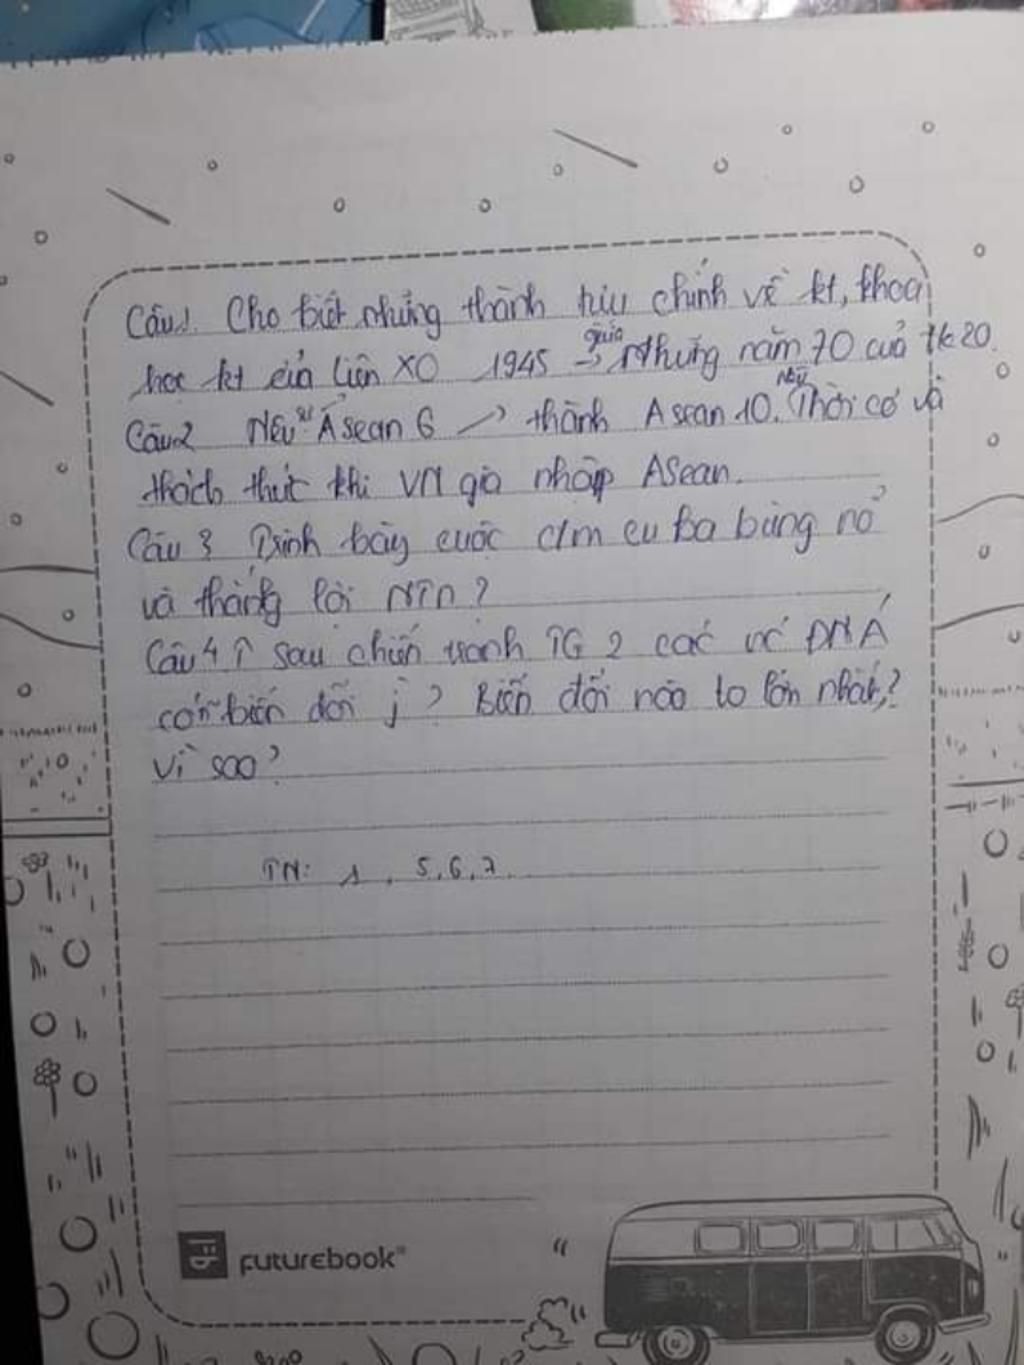 Câu1. Cho biết những thành tựu chính về kt, khoa
học kt của Liên XO 1945 → giữa những năm 70 của tk 20.
Câu2 Nêu sự Asean 6 → thành Asean 10. Nêu Thời cơ và
thách thức khi VN gia nhập ASean.
Câu 3 Trình bày cuộc c/m cu Ba bùng nổ
và thắng lời ntn?
Câu 4 sau chiến tranh TG 2 các nc ĐNÁ
có biến đổi j? Biến đổi nào to lớn nhất?
Vì sao?
TN: 1, 5, 6, 7.
FUTUREBOOK